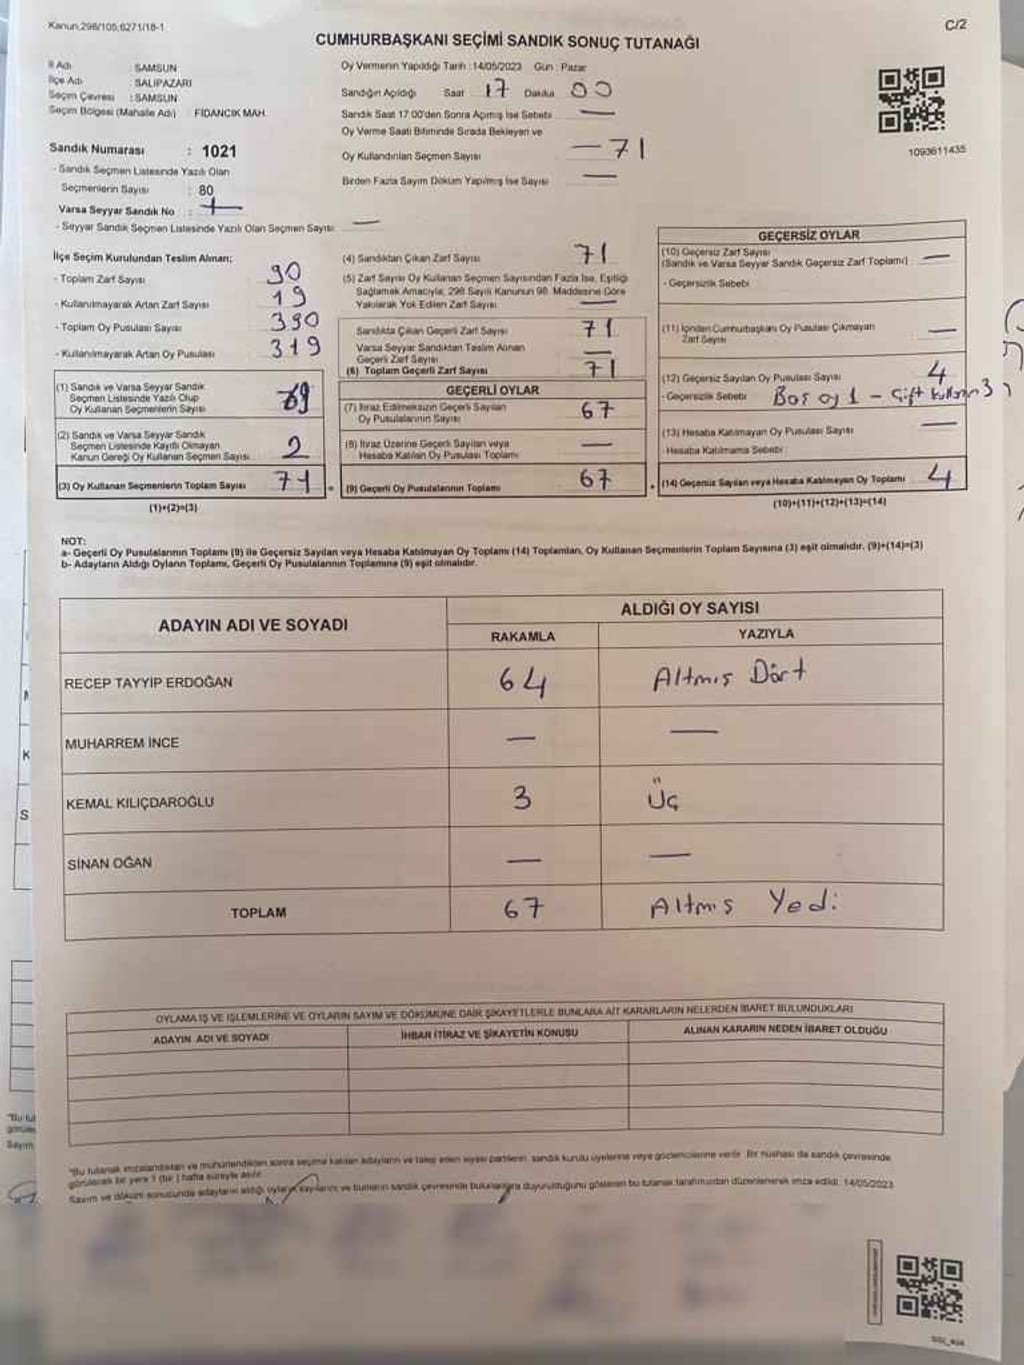 Kanun,298/105,6271/18-1
C/2
CUMHURBAŞKANI SEÇİMİ SANDIK SONUÇ TUTANAĞI
İl Adı : SAMSUN
İlçe Adı : SALIPAZARI
Seçim Çevresi : SAMSUN
Seçim Bölgesi (Mahalle Adı) : FİDANCIK MAH.
Sandık Numarası : 1021
- Sandık Seçmen Listesinde Yazılı Olan
Seçmenlerin Sayısı : 80
Varsa Seyyar Sandık No :
- Seyyar Sandık Seçmen Listesinde Yazılı Olan Seçmen Sayısı: —
Oy Vermenin Yapıldığı Tarih :14/05/2023 Gün : Pazar
Sandığın Açıldığı Saat 17 Dakika 00
Sandık Saat 17:00'den Sonra Açılmış İse Sebebi —
Oy Verme Saati Bitiminde Sırada Bekleyen ve
Oy Kullandırılan Seçmen Sayısı — 71
Birden Fazla Sayım Döküm Yapılmış İse Sayısı —
1093611435
İlçe Seçim Kurulundan Teslim Alınan;
- Toplam Zarf Sayısı 90
- Kullanılmayarak Artan Zarf Sayısı 19
- Toplam Oy Pusulası Sayısı 390
- Kullanılmayarak Artan Oy Pusulası 319
(1) Sandık ve Varsa Seyyar Sandık
Seçmen Listesinde Yazılı Olup
Oy Kullanan Seçmenlerin Sayısı 69
(2) Sandık ve Varsa Seyyar Sandık
Seçmen Listesinde Kayıtlı Olmayan
Kanun Gereği Oy Kullanan Seçmen Sayısı 2
(3) Oy Kullanan Seçmenlerin Toplam Sayısı 71
(1)+(2)=(3)
(4) Sandıktan Çıkan Zarf Sayısı 71
(5) Zarf Sayısı Oy Kullanan Seçmen Sayısından Fazla İse, Eşitliği
Sağlamak Amacıyla, 298 Sayılı Kanunun 98. Maddesine Göre
Yakılarak Yok Edilen Zarf Sayısı —
Sandıkta Çıkan Geçerli Zarf Sayısı 71
Varsa Seyyar Sandıktan Teslim Alınan
Geçerli Zarf Sayısı —
(6) Toplam Geçerli Zarf Sayısı 71
GEÇERLİ OYLAR
(7) İtiraz Edilmeksizin Geçerli Sayılan
Oy Pusulalarının Sayısı 67
(8) İtiraz Üzerine Geçerli Sayılan veya
Hesaba Katılan Oy Pusulası Toplamı —
(9) Geçerli Oy Pusulalarının Toplamı 67
GEÇERSİZ OYLAR
(10) Geçersiz Zarf Sayısı
(Sandık ve Varsa Seyyar Sandık Geçersiz Zarf Toplamı) —
- Geçersizlik Sebebi
(11) İçinden Cumhurbaşkanı Oy Pusulası Çıkmayan
Zarf Sayısı —
(12) Geçersiz Sayılan Oy Pusulası Sayısı 4
- Geçersizlik Sebebi Boş oy 1 - Çift kullanım 3
(13) Hesaba Katılmayan Oy Pusulası Sayısı —
- Hesaba Katılmama Sebebi
(14) Geçersiz Sayılan veya Hesaba Katılmayan Oy Toplamı 4
(10)+(11)+(12)+(13)=(14)
NOT:
a- Geçerli Oy Pusulalarının Toplamı (9) ile Geçersiz Sayılan veya Hesaba Katılmayan Oy Toplamı (14) Toplamları, Oy Kullanan Seçmenlerin Toplam Sayısına (3) eşit olmalıdır. (9)+(14)=(3)
b- Adayların Aldığı Oyların Toplamı, Geçerli Oy Pusulalarının Toplamına (9) eşit olmalıdır.
ADAYIN ADI VE SOYADI
ALDIĞI OY SAYISI
RAKAMLA YAZIYLA
RECEP TAYYIP ERDOĞAN 64 Altmış Dört
MUHARREM İNCE — —
KEMAL KILIÇDAROĞLU 3 Üç
SİNAN OĞAN — —
TOPLAM 67 Altmış Yedi
OYLAMA İŞ VE İŞLEMLERİNE VE OYLARIN SAYIM VE DÖKÜMÜNE DAİR ŞİKAYETLERLE BUNLARA AİT KARARLARIN NELERDEN İBARET BULUNDUKLARI
ADAYIN ADI VE SOYADI İHBAR İTİRAZ VE ŞİKAYETİN KONUSU ALINAN KARARIN NEDEN İBARET OLDUĞU
*Bu tutanak imzalandıktan ve mühürlendikten sonra seçime katılan adayların ve talep eden siyasi partilerin sandık kurulu üyelerine veya gözlemcilerine verilir. Bir nüshası da sandık çevresinde
görülecek bir yere 1 (bir) hafta süreyle asılır.
Sayım ve döküm sonucunda adayların aldığı oyların sayılarını ve bunların sandık çevresinde bulunanlara duyurulduğunu gösteren bu tutanak tarafımızdan düzenlenerek imza edildi. 14/05/2023